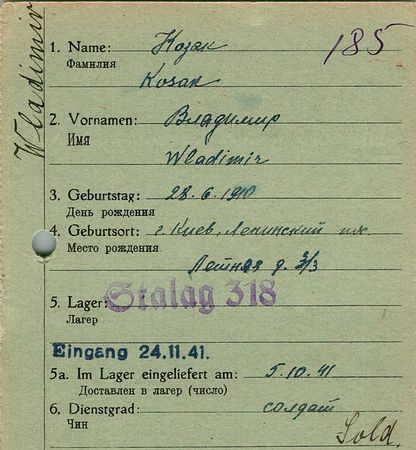 Wladimir
1. Name: Козак 185
Фамилия
Kosak
2. Vornamen: Владимир
Имя
Wladimir
3. Geburtstag: 28.6.1910
День рождения
4. Geburtsort: г. Киев, Ленинский
Место рождения
д. 3/3
5. Lager: Stalag 318
Лагер
Eingang 24.11.41.
5a. Im Lager eingeliefert am: 5.10.41
Доставлен в лагер (число)
6. Dienstgrad: солдат
Чин
Sold.